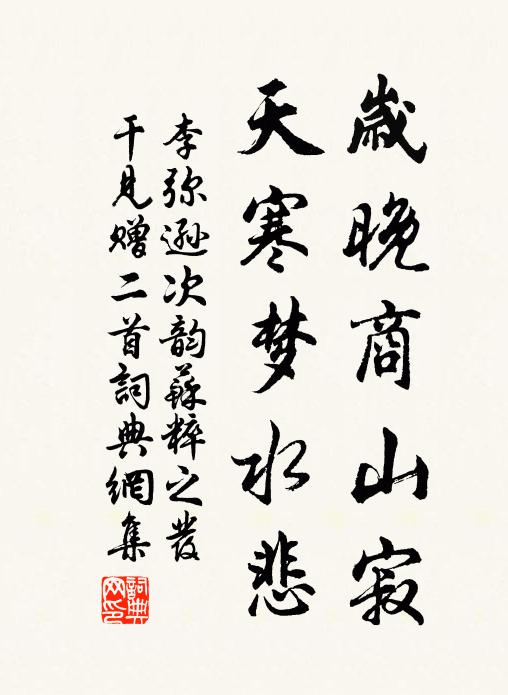 歲晚商山寂
天寒梦水悲
李弥遜次韵蘇粹之發
干見赠二首詞典網集
詞典
网印